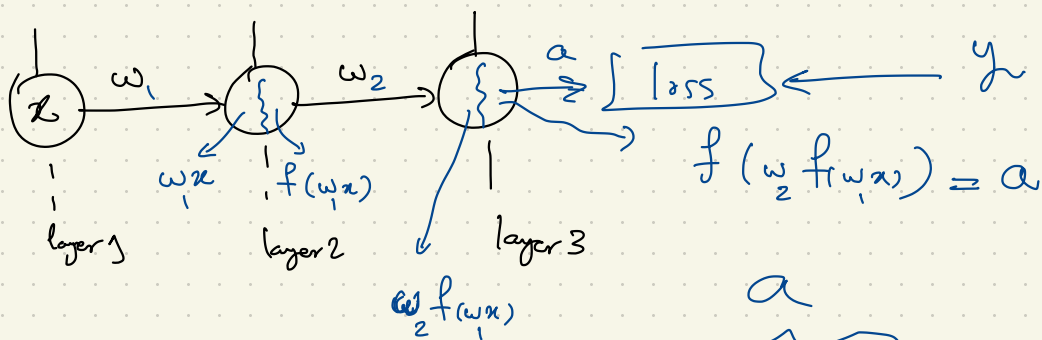 x ω₁ ω₂ a loss y
ω₁x f(ω₁x) f(ω₂ f(ω₁x)) = a
layer 1 layer 2 layer 3
ω₂ f(ω₁x)
a